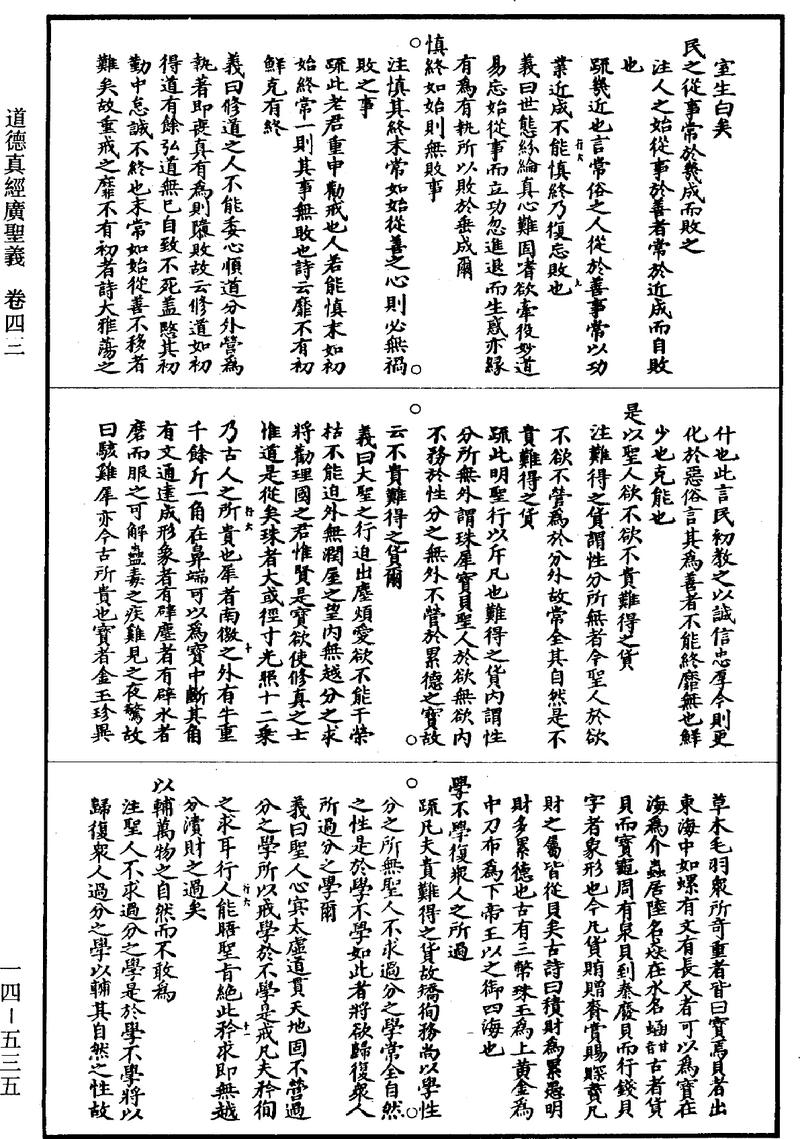 道德真經廣聖義　卷四三
室生白矣
民之從事常於幾成而敗之
注人之始從事於善者常於近成而自敗
也
疏幾近也言常俗之人從於善事常以功
業近成不能慎終乃復忘敗也
義曰世態紛綸真心難固嗜欲牽役妙道
易忘始從事而立功忽進退而生惑亦緣
有為有執所以敗於垂成爾
慎終如始則無敗事
注慎其終末常如始從善之心則必無禍
敗之事
疏此老君重申勸戒也人若能慎末如初
始終常一則其事無敗也詩云靡不有初
鮮克有終
義曰修道之人不能委心順道分外營為
執著即喪真有為則隳敗故云修道如初
得道有餘弘道無已自致不死蓋愍其初
勤中怠誠不終也末常如始從善不移者
難矣故重戒之靡不有初者詩大雅蕩之
什也此言民初教之以誠信忠厚今則更
化於惡俗言其為善者不能終靡無也鮮
少也克能也
是以聖人欲不欲不貴難得之貨
注難得之貨謂性分所無者今聖人於欲
不欲不營為於分外故常全其自然是不
貴難得之貨
疏此明聖行以斥凡也難得之貨內謂性
分所無外謂珠犀寶貝聖人於欲無欲內
不務於性分之無外不營於累德之寶故
云不貴難得之貨爾
義曰大聖之行迫出塵煩愛欲不能干榮
枯不能迫外無潤屋之望內無越分之求
將勸理國之君惟賢是寶欲使修真之士
惟道是從矣珠者大或徑寸光照十二乘
乃古人之所貴也犀者南徼之外有牛重
千餘斤一角在鼻端可以為寶中斷其角
有文通達成形象者有辟塵者有辟水者
磨而服之可解蠱毒之疾雞見之夜驚故
曰駭雞犀亦今古所貴也寶者金玉珍異
草木毛羽眾所奇重者皆曰寶焉貝者出
東海中如螺有文有長尺者可以為寶在
海為介蟲居陸名猋在水名蜬古者貨
貝而寶龜周有泉貝到秦廢貝而行錢貝
字者象形也今凡貨賄賵賚賞賜賕費凡
財之屬皆從貝矣古詩曰積財為累愚明
財多累德也古有三幣珠玉為上黃金為
中刀布為下帝王以之御四海也
學不學復眾人之所過
疏凡夫貴難得之貨故矯徇務尚以學性
分之所無聖人不求過分之學常全自然
之性是於學不學如此者將欲歸復眾人
所過分之學爾
義曰聖人心冥太虛道貫天地固不營過
分之學所以戒學於不學是戒凡夫矜徇
之求耳行人能晤聖旨絕此矜求即無越
分瀆財之過矣
以輔萬物之自然而不敢為
注聖人不求過分之學是於學不學將以
歸復眾人過分之學以輔其自然之性故
一四－五三五